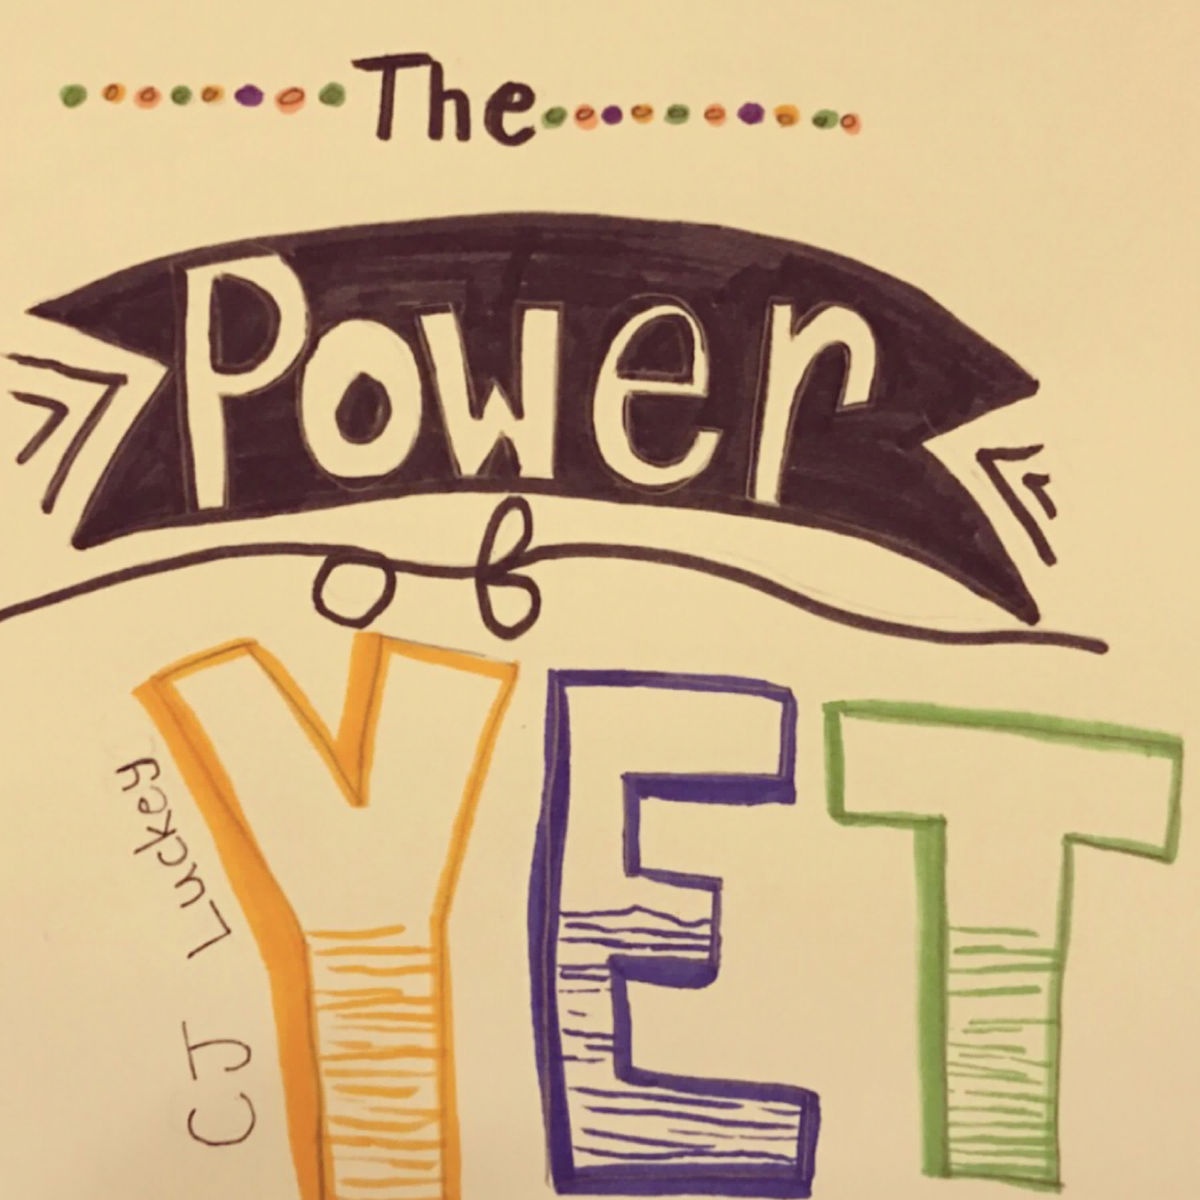 The
Power
of
YET
CJ Luckey